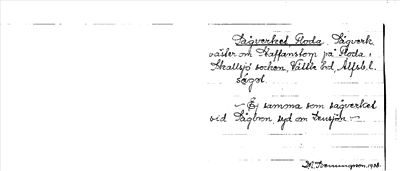 Sågverket, Floda. Sågverk
väster om Staffanstorp på Floda,
Skallsjö socken, Vättle hd, Älfsb. l.
sågat
— Ej samma som sågverket
vid Sågbron syd om Sensjön. —
1928.